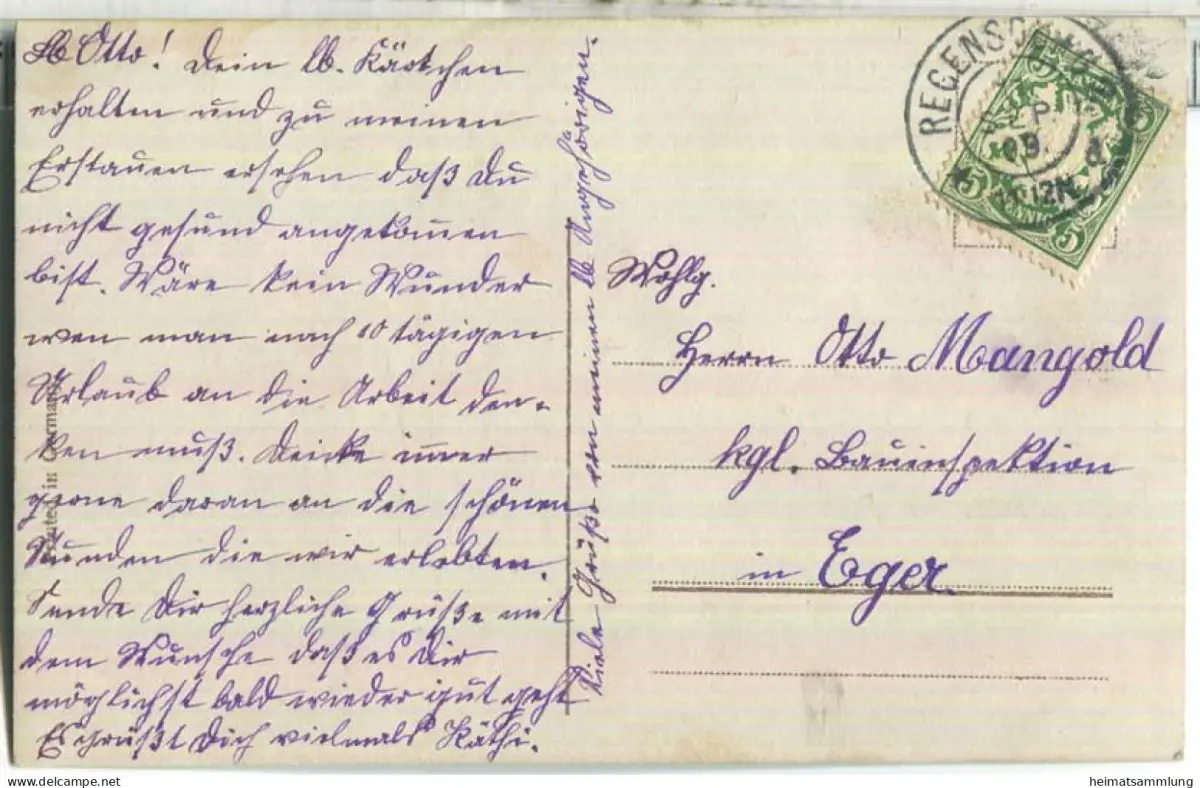 Lb Otto! Dein lb. Kärtchen
erhalten und zu meinen
Erstaunen ersehen daß Du
nicht gesund angekom̅en
bist. Wäre kein Wunder
wen man nach 10 tägigen
Urlaub an die Arbeit den-
ken muß. Denke im̅er
gerne daran an die schönen
Stunden die wir erlebten.
Sende Dir herzliche Grüße mit
dem Wunsche daß es Dir
möglichst bald wieder gut geht
Es grüßt Dich vielmals Käthi.
Viele Grüße von meinen lb. Angehörigen.
Printed in Germany
REGENSBURG
SEP.
09.
12N
5
5
5
Wohlg.
Herrn Otto Mangold
kgl. Bauinspektion
in Eger
heimatsammlung